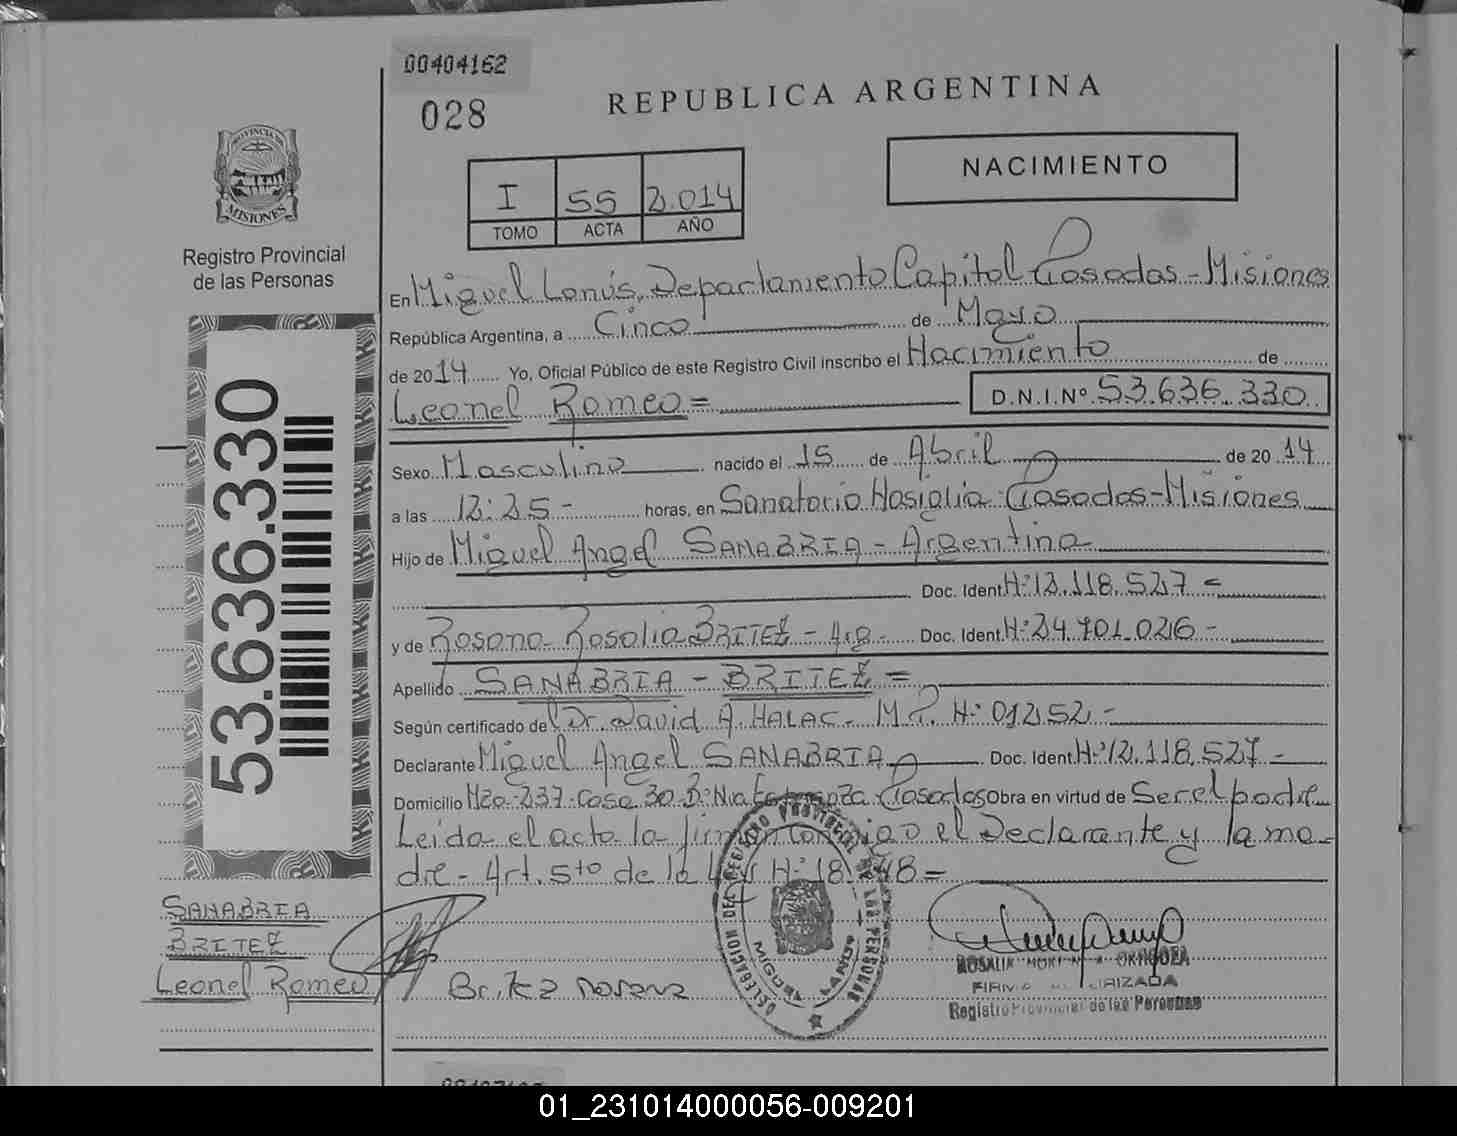 00404162
028
REPUBLICA ARGENTINA
NACIMIENTO
I 55 2.014
TOMO ACTA AÑO
PROVINCIA
MISIONES
Registro Provincial
de las Personas
53.636.330
En Miguel Lanús, Departamento Capital Posadas - Misiones
República Argentina, a Cinco de Mayo
de 2014 Yo, Oficial Público de este Registro Civil inscribo el Nacimiento de
Leonel Romeo =
D.N.I.Nº 53.636.330
Sexo Masculino nacido el 15 de Abril de 2014
a las 12:25 - horas, en Sanatorio Nosiglia Posadas - Misiones
Hijo de Miguel Angel SANABRIA - Argentina
Doc. Ident. Nº 12.118.527 =
y de Rosana Rosalia BRITEZ - Arg - Doc. Ident. Nº 24.701.026 -
Apellido SANABRIA - BRITEZ =
Según certificado de Dr. David A. HALAC - M.P. Nº 01252 -
Declarante Miguel Angel SANABRIA Doc. Ident. Nº 12.118.527 -
Domicilio Mza 237 Casa 30 Bº Nva Esperanza Posadas Obra en virtud de Ser el padre
Leida el acta la firman conmigo el Declarante y la ma-
dre - Art. 5to de la Ley Nº 18.248 =
SANABRIA
BRITEZ
Leonel Romeo
Britez rosana
DELEGACION DEL REGISTRO PROVINCIAL DE LAS PERSONAS
MIGUEL LANUS
ROSALIA ORTIGOZA
Registro Provincial de las Personas
01_231014000056-009201